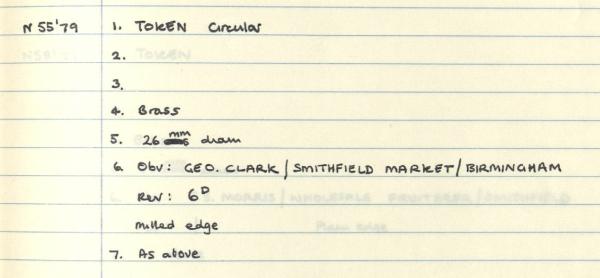 N 55'79 1. TOKEN Circular
2.
3.
4. Brass
5. 26 mm diam
6. Obv: GEO. CLARK / SMITHFIELD MARKET / BIRMINGHAM
Rev: 6D
milled edge
7. As above